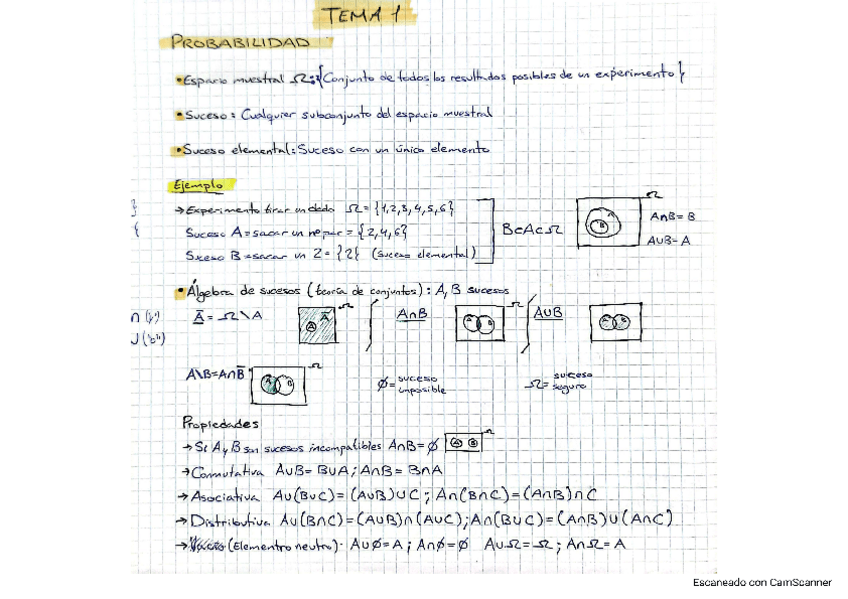 TEMA 1
PROBABILIDAD
• Espacio muestral Ω:{Conjunto de todos los resultados posibles de un experimento}
• Suceso: Cualquier subconjunto del espacio muestral
• Suceso elemental: Suceso con un único elemento
Ejemplo
→ Experimento tirar un dado Ω = {1,2,3,4,5,6}
Suceso A = sacar un nº par = {2,4,6}
Suceso B = sacar un 2 = {2} (suceso elemental)
}
{
B⊂A⊂Ω
Ω
A
B
A∩B = B
A∪B = A
• Álgebra de sucesos (teoría de conjuntos): A, B sucesos
∩ (y)
∪ ("o")
Ā = Ω \ A
A Ā
A∩B
Ω
A∪B
A B
A\B = A∩B̄
Ω
A B
∅ = suceso imposible
Ω = suceso seguro
Propiedades
→ Si A y B son sucesos incompatibles A∩B = ∅
A B Ω
→ Conmutativa A∪B = B∪A ; A∩B = B∩A
→ Asociativa A∪(B∪C) = (A∪B)∪C ; A∩(B∩C) = (A∩B)∩C
→ Distributiva A∪(B∩C) = (A∪B)∩(A∪C) ; A∩(B∪C) = (A∩B)∪(A∩C)
→ (Elementro neutro). A∪∅ = A ; A∩∅ = ∅ A∪Ω = Ω ; A∩Ω = A
Escaneado con CamScanner